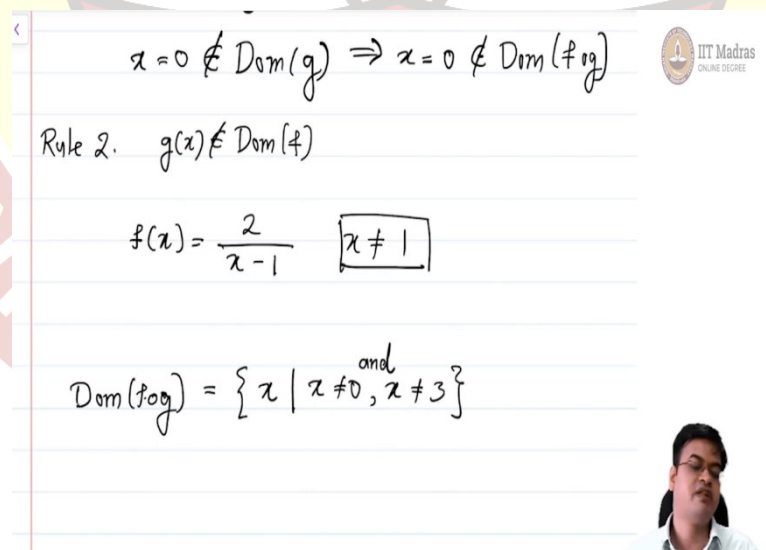 x = 0 ∉ Dom(g) ⇒ x = 0 ∉ Dom(fog)
IIT Madras
ONLINE DEGREE
Rule 2. g(x) ∉ Dom(f)
f(x) = 2/(x-1) x ≠ 1
Dom(fog) = {x | x ≠ 0, and x ≠ 3}